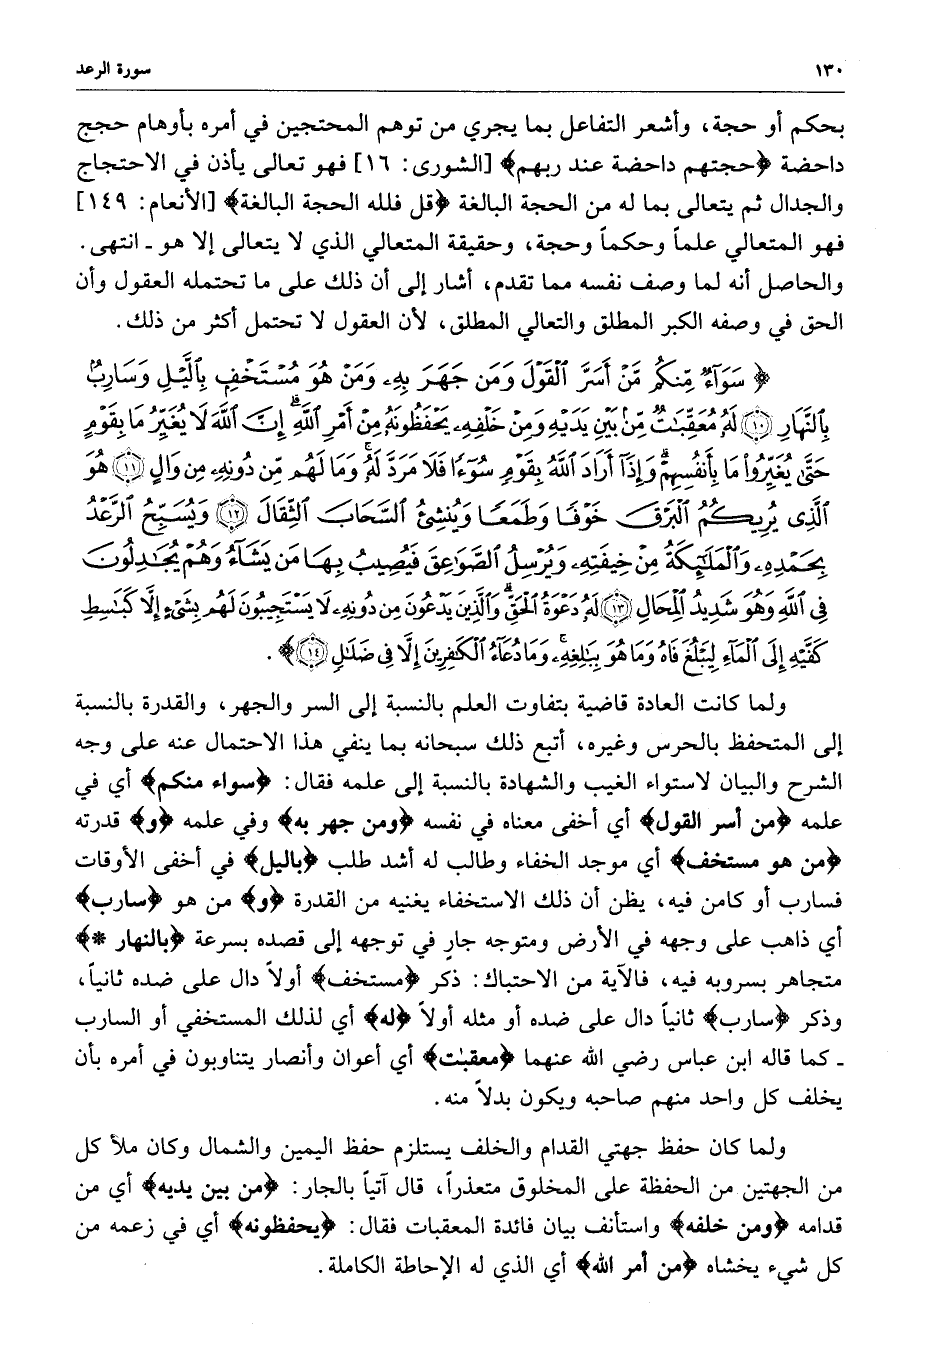 ١٣٠ سورة الرعد
بحكم أو حجة، وأشعر التفاعل بما يجري من توهم المحتجين في أمره بأوهام حجج
داحضة ﴿حجتهم داحضة عند ربهم﴾ [الشورى: ١٦] فهو تعالى يأذن في الاحتجاج
والجدال ثم يتعالى بما له من الحجة البالغة ﴿قل فلله الحجة البالغة﴾ [الأنعام: ١٤٩]
فهو المتعالي علماً وحكماً وحجة، وحقيقة المتعالي الذي لا يتعالى إلا هو ـ انتهى.
والحاصل أنه لما وصف نفسه مما تقدم، أشار إلى أن ذلك على ما تحتمله العقول وأن
الحق في وصفه الكبر المطلق والتعالي المطلق، لأن العقول لا تحتمل أكثر من ذلك.
﴿ سَوَآءٌ مِّنكُم مَّنْ أَسَرَّ ٱلْقَوْلَ وَمَن جَهَرَ بِهِۦ وَمَنْ هُوَ مُسْتَخْفٍۭ بِٱلَّيْلِ وَسَارِبٌۢ
بِٱلنَّهَارِ ١٠ لَهُۥ مُعَقِّبَٰتٌ مِّنۢ بَيْنِ يَدَيْهِ وَمِنْ خَلْفِهِۦ يَحْفَظُونَهُۥ مِنْ أَمْرِ ٱللَّهِ ۗ إِنَّ ٱللَّهَ لَا يُغَيِّرُ مَا بِقَوْمٍ
حَتَّىٰ يُغَيِّرُوا۟ مَا بِأَنفُسِهِمْ ۗ وَإِذَآ أَرَادَ ٱللَّهُ بِقَوْمٍ سُوٓءًا فَلَا مَرَدَّ لَهُۥ ۚ وَمَا لَهُم مِّن دُونِهِۦ مِن وَالٍ ١١ هُوَ
ٱلَّذِى يُرِيكُمُ ٱلْبَرْقَ خَوْفًا وَطَمَعًا وَيُنشِئُ ٱلسَّحَابَ ٱلثِّقَالَ ١٢ وَيُسَبِّحُ ٱلرَّعْدُ
بِحَمْدِهِۦ وَٱلْمَلَٰٓئِكَةُ مِنْ خِيفَتِهِۦ وَيُرْسِلُ ٱلصَّوَٰعِقَ فَيُصِيبُ بِهَا مَن يَشَآءُ وَهُمْ يُجَٰدِلُونَ
فِى ٱللَّهِ وَهُوَ شَدِيدُ ٱلْمِحَالِ ١٣ لَهُۥ دَعْوَةُ ٱلْحَقِّ ۖ وَٱلَّذِينَ يَدْعُونَ مِن دُونِهِۦ لَا يَسْتَجِيبُونَ لَهُم بِشَىْءٍ إِلَّا كَبَٰسِطِ
كَفَّيْهِ إِلَى ٱلْمَآءِ لِيَبْلُغَ فَاهُ وَمَا هُوَ بِبَٰلِغِهِۦ ۚ وَمَا دُعَآءُ ٱلْكَٰفِرِينَ إِلَّا فِى ضَلَٰلٍ ١٤ ﴾.
ولما كانت العادة قاضية بتفاوت العلم بالنسبة إلى السر والجهر، والقدرة بالنسبة
إلى المتحفظ بالحرس وغيره، أتبع ذلك سبحانه بما ينفي هذا الاحتمال عنه على وجه
الشرح والبيان لاستواء الغيب والشهادة بالنسبة إلى علمه فقال: ﴿سواء منكم﴾ أي في
علمه ﴿من أسر القول﴾ أي أخفى معناه في نفسه ﴿ومن جهر به﴾ وفي علمه ﴿و﴾ قدرته
﴿من هو مستخف﴾ أي موجد الخفاء وطالب له أشد طلب ﴿باليل﴾ في أخفى الأوقات
فسارب أو كامن فيه، يظن أن ذلك الاستخفاء يغنيه من القدرة ﴿و﴾ من هو ﴿سارب﴾
أي ذاهب على وجهه في الأرض ومتوجه جارٍ في توجهه إلى قصده بسرعة ﴿بالنهار *﴾
متجاهر بسروبه فيه، فالآية من الاحتباك: ذكر ﴿مستخف﴾ أولاً دال على ضده ثانياً،
وذكر ﴿سارب﴾ ثانياً دال على ضده أو مثله أولاً ﴿له﴾ أي لذلك المستخفي أو السارب
ـ كما قاله ابن عباس رضي الله عنهما ﴿معقبٰت﴾ أي أعوان وأنصار يتناوبون في أمره بأن
يخلف كل واحد منهم صاحبه ويكون بدلاً منه.
ولما كان حفظ جهتي القدام والخلف يستلزم حفظ اليمين والشمال وكان ملأ كل
من الجهتين من الحفظة على المخلوق متعذراً، قال آتياً بالجار: ﴿من بين يديه﴾ أي من
قدامه ﴿ومن خلفه﴾ واستأنف بيان فائدة المعقبات فقال: ﴿يحفظونه﴾ أي في زعمه من
كل شيء يخشاه ﴿من أمر الله﴾ أي الذي له الإحاطة الكاملة.